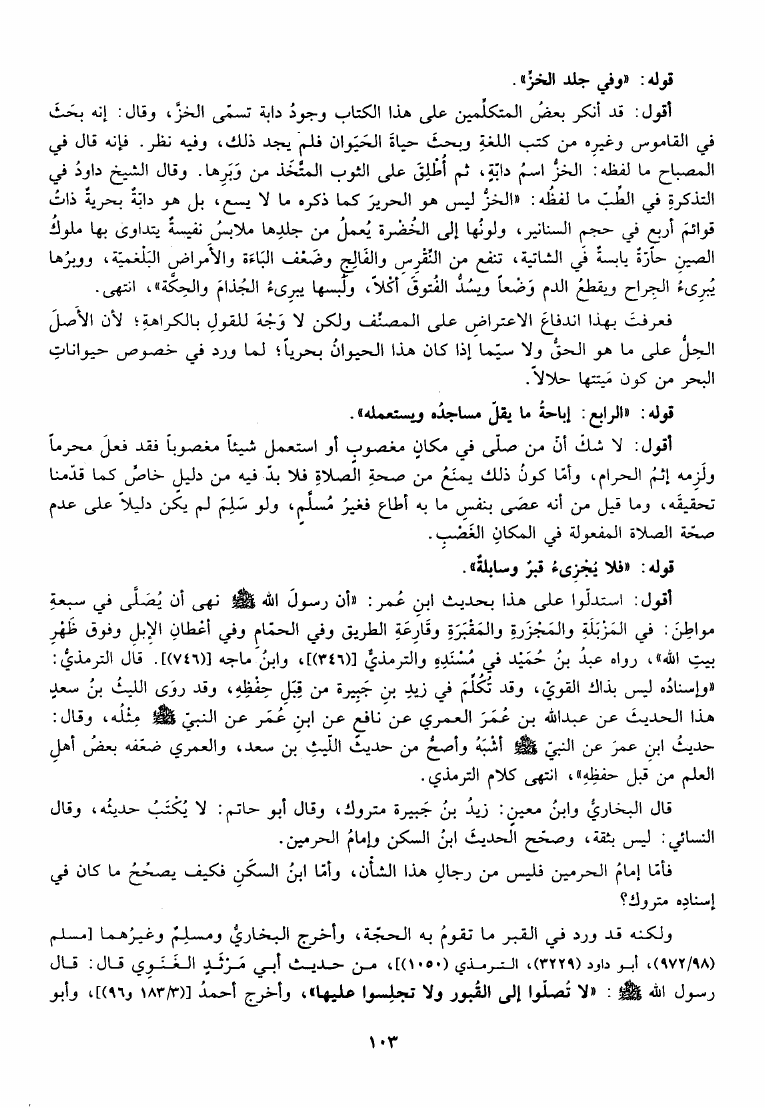 قوله: «وفي جلد الخزِّ».
أقول: قد أنكر بعضُ المتكلِّمين على هذا الكتاب وجودُ دابة تسمّى الخزَّ، وقال: إنه بحَثَ
في القاموس وغيرِه من كتب اللغةِ وبحثَ حياةَ الحَيَوان فلم يجد ذلك، وفيه نظر. فإنه قال في
المصباح ما لفظه: الخزُّ اسمُ دابّةٍ، ثم أُطْلِقَ على الثوب المتَّخذ من وَبَرِها. وقال الشيخ داودُ في
التذكرةِ في الطِّبّ ما لفظُه: «الخزُّ ليس هو الحريرَ كما ذكره ما لا يسع، بل هو دابّةٌ بحريةٌ ذاتُ
قوائمَ أربعٍ في حجم السنانير، ولونُها إلى الخُضْرة يُعملُ من جلدِها ملابسُ نفيسةٌ يتداوى بها ملوكُ
الصينِ حارّةٌ يابسةٌ في الشاتية، تنفع من النِّقْرِسِ والفَالِجِ وضَعْف البَاءَة والأمراضِ البَلْغَميّة، ووبرُها
يُبرِىءُ الجِراح ويقطعُ الدم وَضْعاً ويسُدُّ الفُتوقَ أكْلاً، ولُبسها يبرِىءُ الجُذامَ والحِكّة»، انتهى.
فعرفتَ بهذا اندفاعَ الاعتراضِ على المصنِّف ولكن لا وَجْهَ للقولِ بالكراهةِ؛ لأن الأصلَ
الحِلُّ على ما هو الحقُّ ولا سيّما إذا كان هذا الحيوانُ بحرياً؛ لما ورد في خصوص حيواناتِ
البحر من كون مَيتتها حلالاً.
قوله: «الرابع: إباحةُ ما يقلّ مساجدُه ويستعمله».
أقول: لا شكَّ أنّ من صلّى في مكانٍ مغصوبٍ أو استعمل شيئاً مغصوباً فقد فعلَ محرماً
ولَزِمه إثمُ الحرام، وأمّا كونُ ذلك يمنَعُ من صحةِ الصلاةِ فلا بدّ فيه من دليلٍ خاصٍّ كما قدّمنا
تحقيقَه، وما قيل من أنه عصَى بنفسِ ما به أطاع فغيرُ مُسلَّمٍ، ولو سَلِمَ لم يكن دليلاً على عدم
صحّة الصلاة المفعولة في المكانِ الغَصْبِ.
قوله: «فلا يُجْزِىءُ قبرٌ وسابلةٌ».
أقول: استدلّوا على هذا بحديث ابنِ عُمر: «أن رسولَ الله ﷺ نهى أن يُصَلَّى في سبعةِ
مواطِنَ: في المَزْبَلَةِ والمَجْزَرةِ والمَقْبَرَةِ وقَارِعَةِ الطريق وفي الحمّامِ وفي أعْطانِ الإبلِ وفوق ظَهْرِ
بيتِ الله»، رواه عبدُ بنُ حُمَيْد في مُسْنَدِهِ والترمذيُّ [(٣٤٦)]، وابنُ ماجه [(٧٤٦)]. قال الترمذيُّ:
«وإسنادُه ليس بذاك القويّ، وقد تُكُلِّمَ في زيدِ بنِ جَبِيرة من قِبَلِ حِفْظِهِ، وقد روَى الليثُ بنُ سعدٍ
هذا الحديثَ عن عبدالله بن عُمَرَ العمري عن نافع عن ابنِ عُمَر عن النبيّ ﷺ مِثْلُه، وقال:
حديثُ ابنِ عمرَ عن النبيّ ﷺ أشْبَهُ وأصحُّ من حديثِ اللّيثِ بن سعد، والعمري ضعّفه بعضُ أهلِ
العلم من قبل حفظِهِ»، انتهى كلام الترمذي.
قال البخاريُّ وابنُ معينٍ: زيدُ بنُ جَبيرة متروك، وقال أبو حاتم: لا يُكْتَبُ حديثُه، وقال
النسائي: ليس بثقة، وصحّح الحديثَ ابنُ السكن وإمامُ الحرمين.
فأمّا إمامُ الحرمين فليس من رجالِ هذا الشأن، وأمّا ابنُ السكَنِ فكيف يصحّحُ ما كان في
إسنادِه متروك؟
ولكنه قد ورد في القبر ما تقومُ به الحجّة، وأخرج البخاريُّ ومسلِمٌ وغيرُهما [مسلم
(٩٧٢/٩٨)، أبو داود (٣٢٢٩)، الترمذي (١٠٥٠)]، من حديث أبي مَرْثَدٍ الغَنَوِي قال: قال
رسول الله ﷺ: «لا تُصلّوا إلى القُبور ولا تجلِسوا عليها»، وأخرج أحمدُ [(١٨٣/٣ و٩٦)]، وأبو
١٠٣